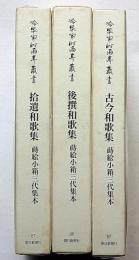 冷泉家時雨亭叢書
古今和歌集 蒔絵小箱三代集本
朝日新聞社
冷泉家時雨亭叢書
後撰和歌集 蒔絵小箱三代集本
朝日新聞社
冷泉家時雨亭叢書
拾遺和歌集 蒔絵小箱三代集本
朝日新聞社